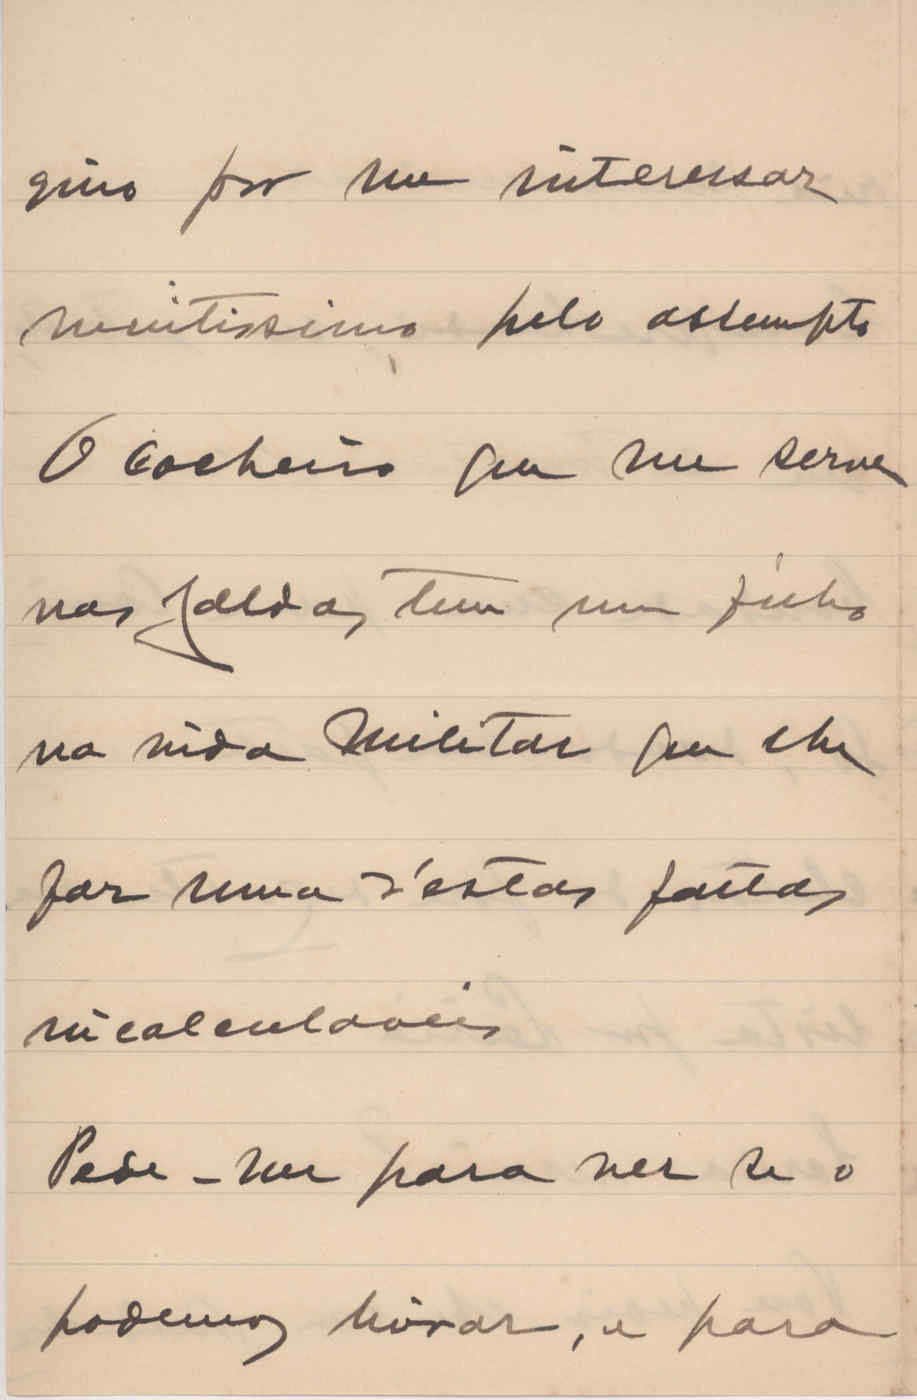 giro por me interessar
muitissimo pelo assumpto
O cocheiro que me serve
nas Caldas, tem um filho
na vida Militar que lhe
faz uma d'estas faltas
incalculaveis
Pede-me para ver se o
podemos livrar, e para